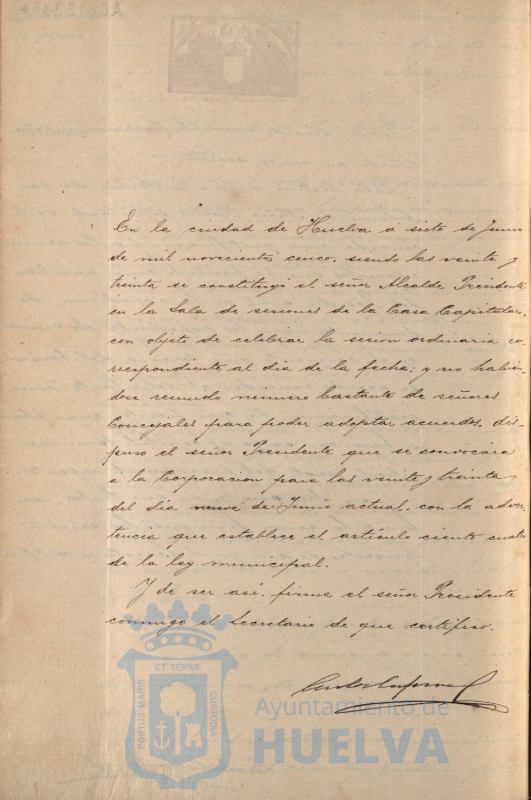 En la ciudad de Huelva a siete de Junio
de mil novecientos cinco, siendo las veinte y
treinta se constituyó el señor Alcalde Presidente
en la Sala de sesiones de la Casa Capitular,
con objeto de celebrar la sesion ordinaria co-
rrespondiente al dia de la fecha; y no habien-
dose reunido número bastante de señores
Concejales para poder adoptar acuerdos, dis-
puso el señor Presidente que se convocára
a la Corporacion para las veinte y treinta
del dia nueve de Junio actual, con la adver-
tencia que establece el artículo ciento cuatro
de la ley municipal.
Y de ser así, firma el señor Presidente
conmigo el Secretario de que certifico.
ET TERRÆ
PORTUS MARIS
CUSTODIA
Ayuntamiento de
HUELVA